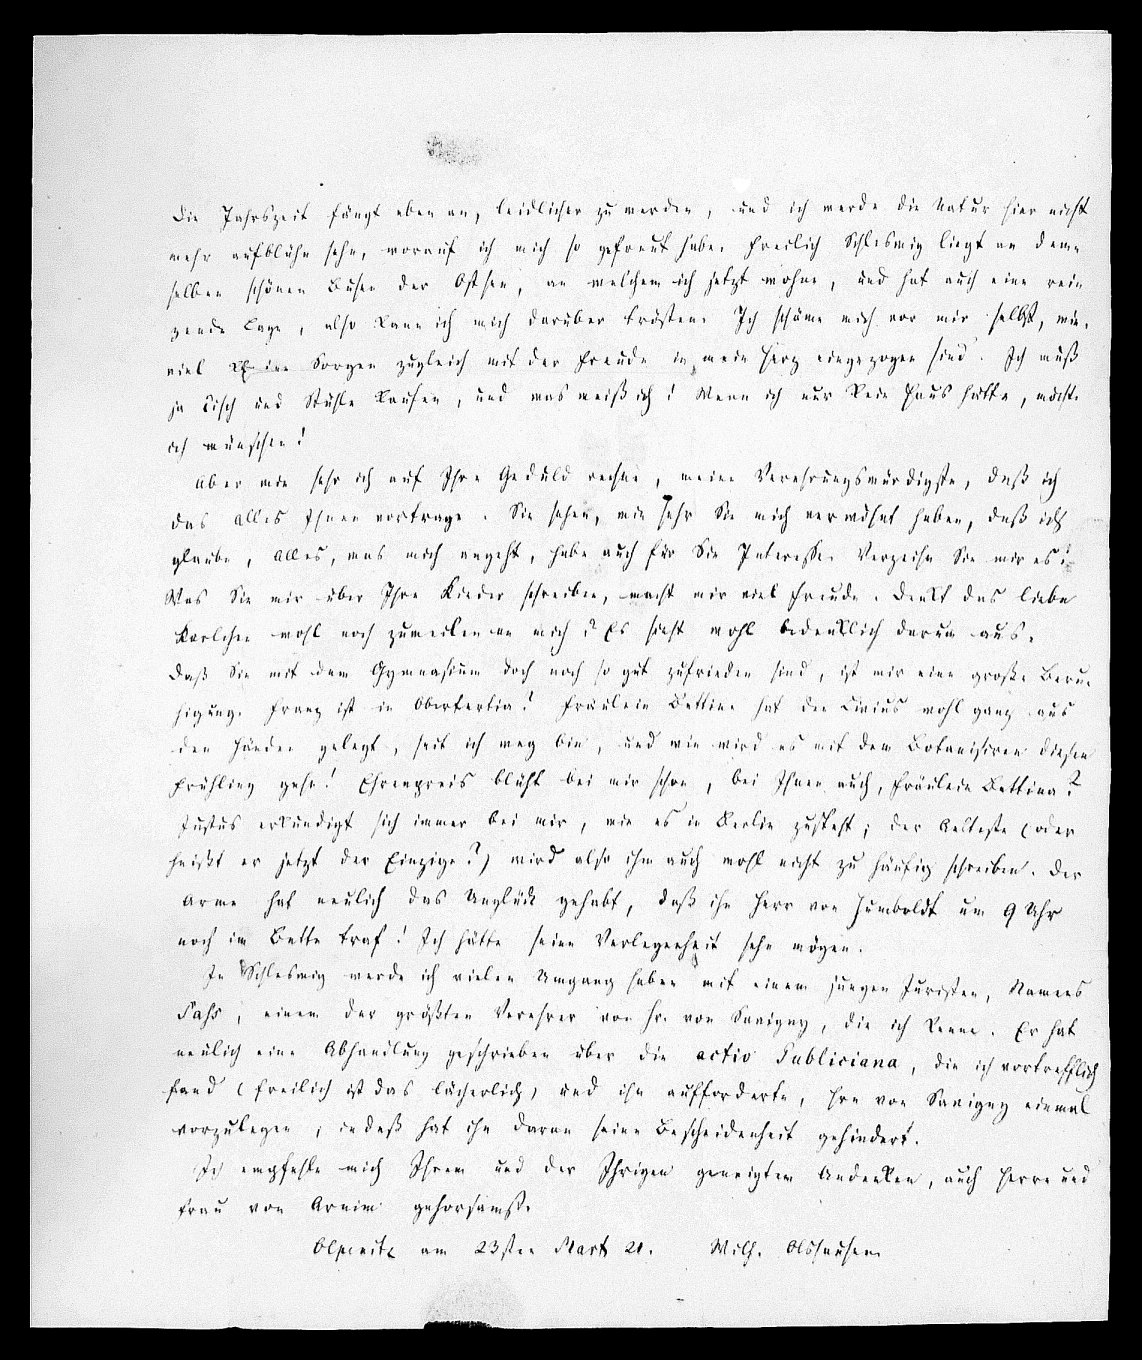 Die Jahrszeit fängt eben an, leidlicher zu werden, und ich werde die Natur hier nicht
mehr aufblühn sehn, worauf ich mich so gefreut habe. Freilich Schleswig liegt an dem-
selben schönen Busen der Ostsee, an welchem ich jetzt wohne, und hat auch eine rei-
zende Lage, also kann ich mich darüber trösten. Ich schäme mich vor mir selbst, wie-
viel kleine Sorgen zugleich mit der Freude in mein Herz eingezogen sind. Ich muß
ja Tisch und Stühle kaufen, und was weiß ich! Wenn ich nur kein Haus hätte, möcht
ich wünschen!
Aber wie sehr ich auf Ihre Geduld rechne, meine Verehrungswürdigste, daß ich
das alles Ihnen vortrage. Sie sehen, wie sehr Sie mich verwöhnt haben, daß ich
glaube, alles, was mich angeht, habe auch für Sie Interesse. Verzeihn Sie mir es!
Was Sie mir über Ihre Kinder schreiben, macht mir viel Freude. Denkt das liebe
Karlchen wohl noch zuweilen an mich? Es sieht wohl bedenklich darum aus.
Daß Sie mit dem Gymnasium doch noch so gut zufrieden sind, ist mir eine große Beru-
higung. Franz ist in Obertertia! Fräulein Bettine hat den Livius wohl ganz aus
den Händen gelegt, seit ich weg bin, und wie wird es mit dem Botanisiren diesen
Frühling gehn! Ehrenpreis blüht bei mir schon, bei Ihnen auch, Fräulein Bettina?
Justus erkundigt sich immer bei mir, wie es in Berlin zusteht; der Aelteste (oder
heißt er jetzt der Einzige?) wird also ihm auch wohl nicht zu häufig schreiben. Der
Arme hat neulich das Unglück gehabt, daß ihn Herr von Humboldt um 9 Uhr
noch im Bette traf! Ich hätte seine Verlegenheit sehn mögen.
In Schleswig werde ich vielen Umgang haben mit einem jungen Juristen, Namens
Pahs, einem der größten Verehrer von Hr. von Savigny, die ich kenne. Er hat
neulich eine Abhandlung geschrieben über die actio Publiciana, die ich vortrefflich
fand (freilich ist das lächerlich) und ihn aufforderte, Hrn von Savigny einmal
vorzulegen, indeß hat ihn daran seine Bescheidenheit gehindert.
Ich empfehle mich Ihrem und der Ihrigen geneigtem Andenken, auch Herrn und
Frau von Arnim gehorsamst.
Olpenitz am 23sten Mart 21. Wilh. Olshausen